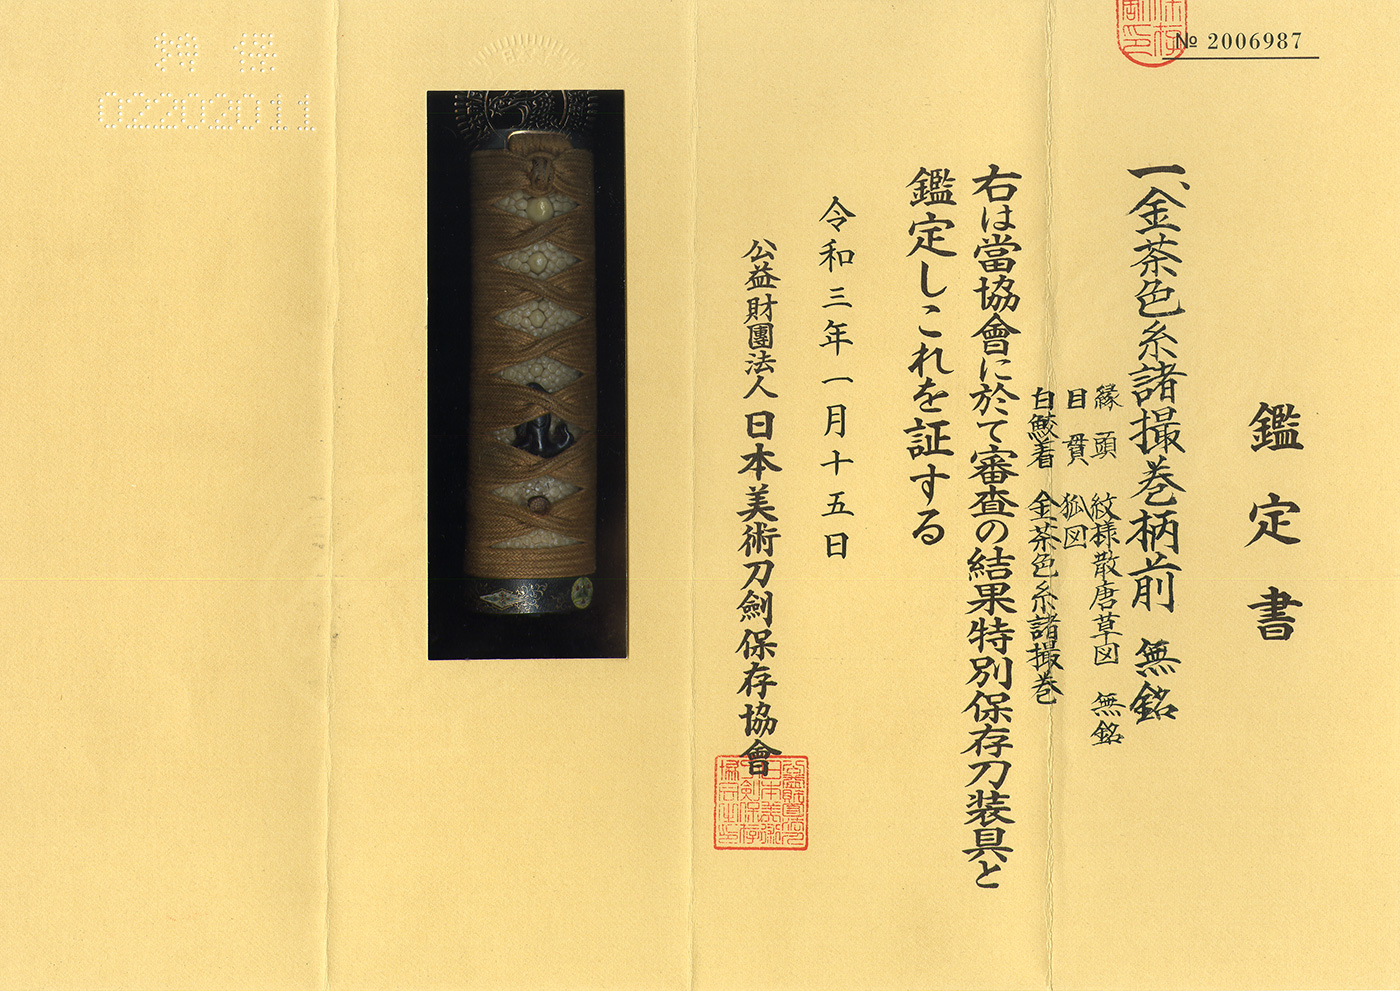 № 2006987
鑑定書
一、金茶色糸諸撮巻柄前 無銘
縁頭 紋様散唐草図 無銘
目貫 狐図
白鮫着 金茶色糸諸撮巻
右は當協會に於て審査の結果特別保存刀装具と
鑑定しこれを証する
令和三年一月十五日
公益財團法人 日本美術刀劍保存協會
特保
02202011